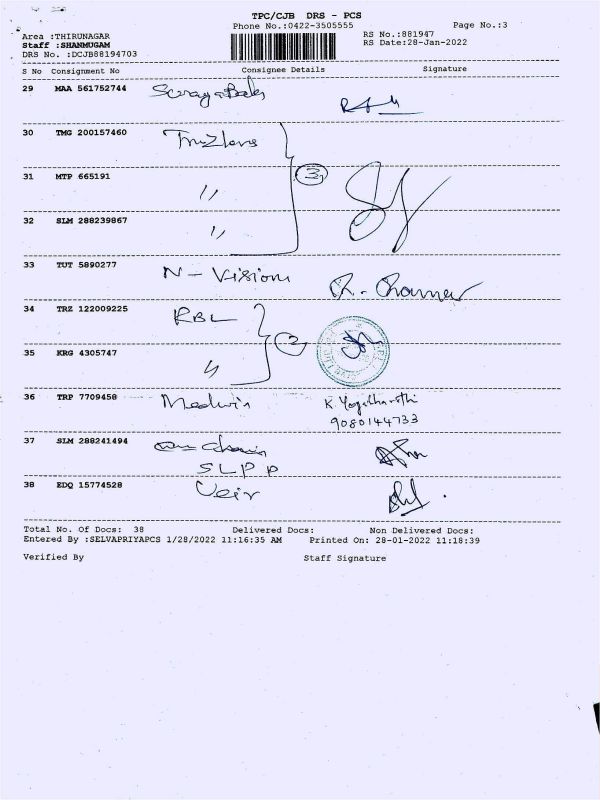 TPC/CJB DRS - PCS
Phone No.:0422-3505555
Page No.:3
Area :THIRUNAGAR
Staff :SHANMUGAM
DRS No. :DCJB88194703
RS No.:881947
RS Date:28-Jan-2022
S No Consignment No Consignee Details Signature
29 MAA 561752744
30 TMG 200157460
31 MTP 665191 〃 3
32 SLM 288239867 〃
33 TUT 5890277 N - Visions
34 TRZ 122009225 RBL
35 KRG 4305747 〃 2
36 TRP 7709458 Medwin K. Yogalharathi
9080144733
37 SLM 288241494
SLPP
38 EDQ 15774528 Veir
Total No. Of Docs: 38 Delivered Docs: Non Delivered Docs:
Entered By :SELVAPRIYAPCS 1/28/2022 11:16:35 AM Printed On: 28-01-2022 11:18:39
Verified By Staff Signature